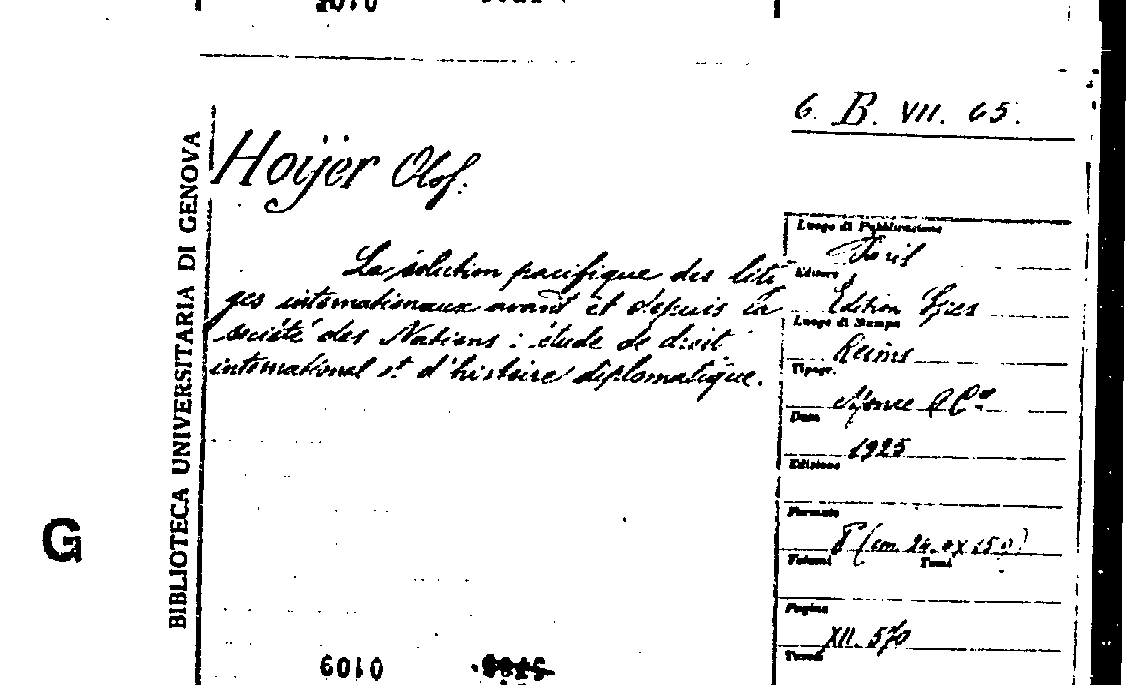 6. B. VII. 65.
BIBLIOTECA UNIVERSITARIA DI GENOVA
Hoijer Olof.
La solution pacifique des liti
ges internationaux avant et depuis la
société des Nations : étude de droit
international et d'histoire diplomatique.
Luogo di Pubblicazione
Paris
Editore
Edition Spes
Luogo di Stampa
Reims
Tipogr.
& Cie
Data
1925
Edizione
Formato
8° (cm.
Volumi Tomi
Pagine
XII. 570
Tavole
G
0109